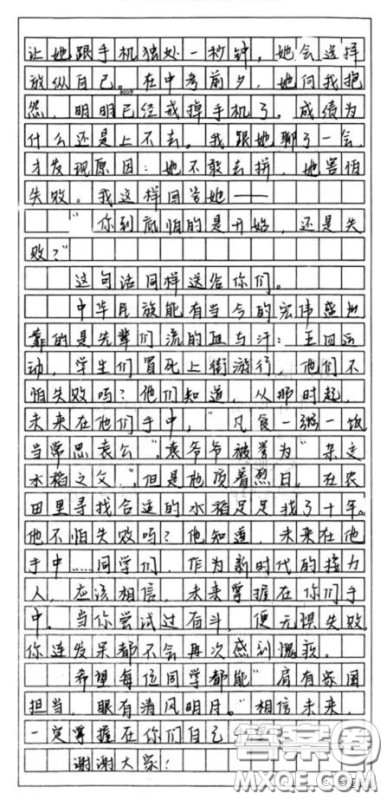 让她跟手机独处一秒钟，她会选择
放纵自己。在中考前夕，她向我抱
怨，明明已经戒掉手机了，成绩为
什么还是上不去。我跟她聊了一会，
才发现原因：她不敢去拼，她害怕
失败。我这样回答她——
“你到底怕的是开始，还是失
败？”
这句话同样送给你们。
中华民族能有当今的宏伟盛世
靠的是先辈们流的血与汗：五四运
动，学生们冒死上街游行，他们不
怕失败吗？他们知道，从那时起，
未来在他们手中，“凡食一粥一饭
当常思袁公”，袁爷爷被誉为“杂交
水稻之父”，但是他顶着烈日。在农
田里寻找合适的水稻足足找了十年。
他不怕失败吗？他知道，未来在他
手中……同学们，作为新时代的接力
人，应该相信，未来掌握在你们手
中。当你尝试过奋斗，便无惧失败
你连发呆都不会再次感到愧疚。
希望每位同学都能“肩有家国
担当，眼有清风明月。”相信未来，
一定掌握在你们自己
谢谢大家！
答案卷
MXQE.COM